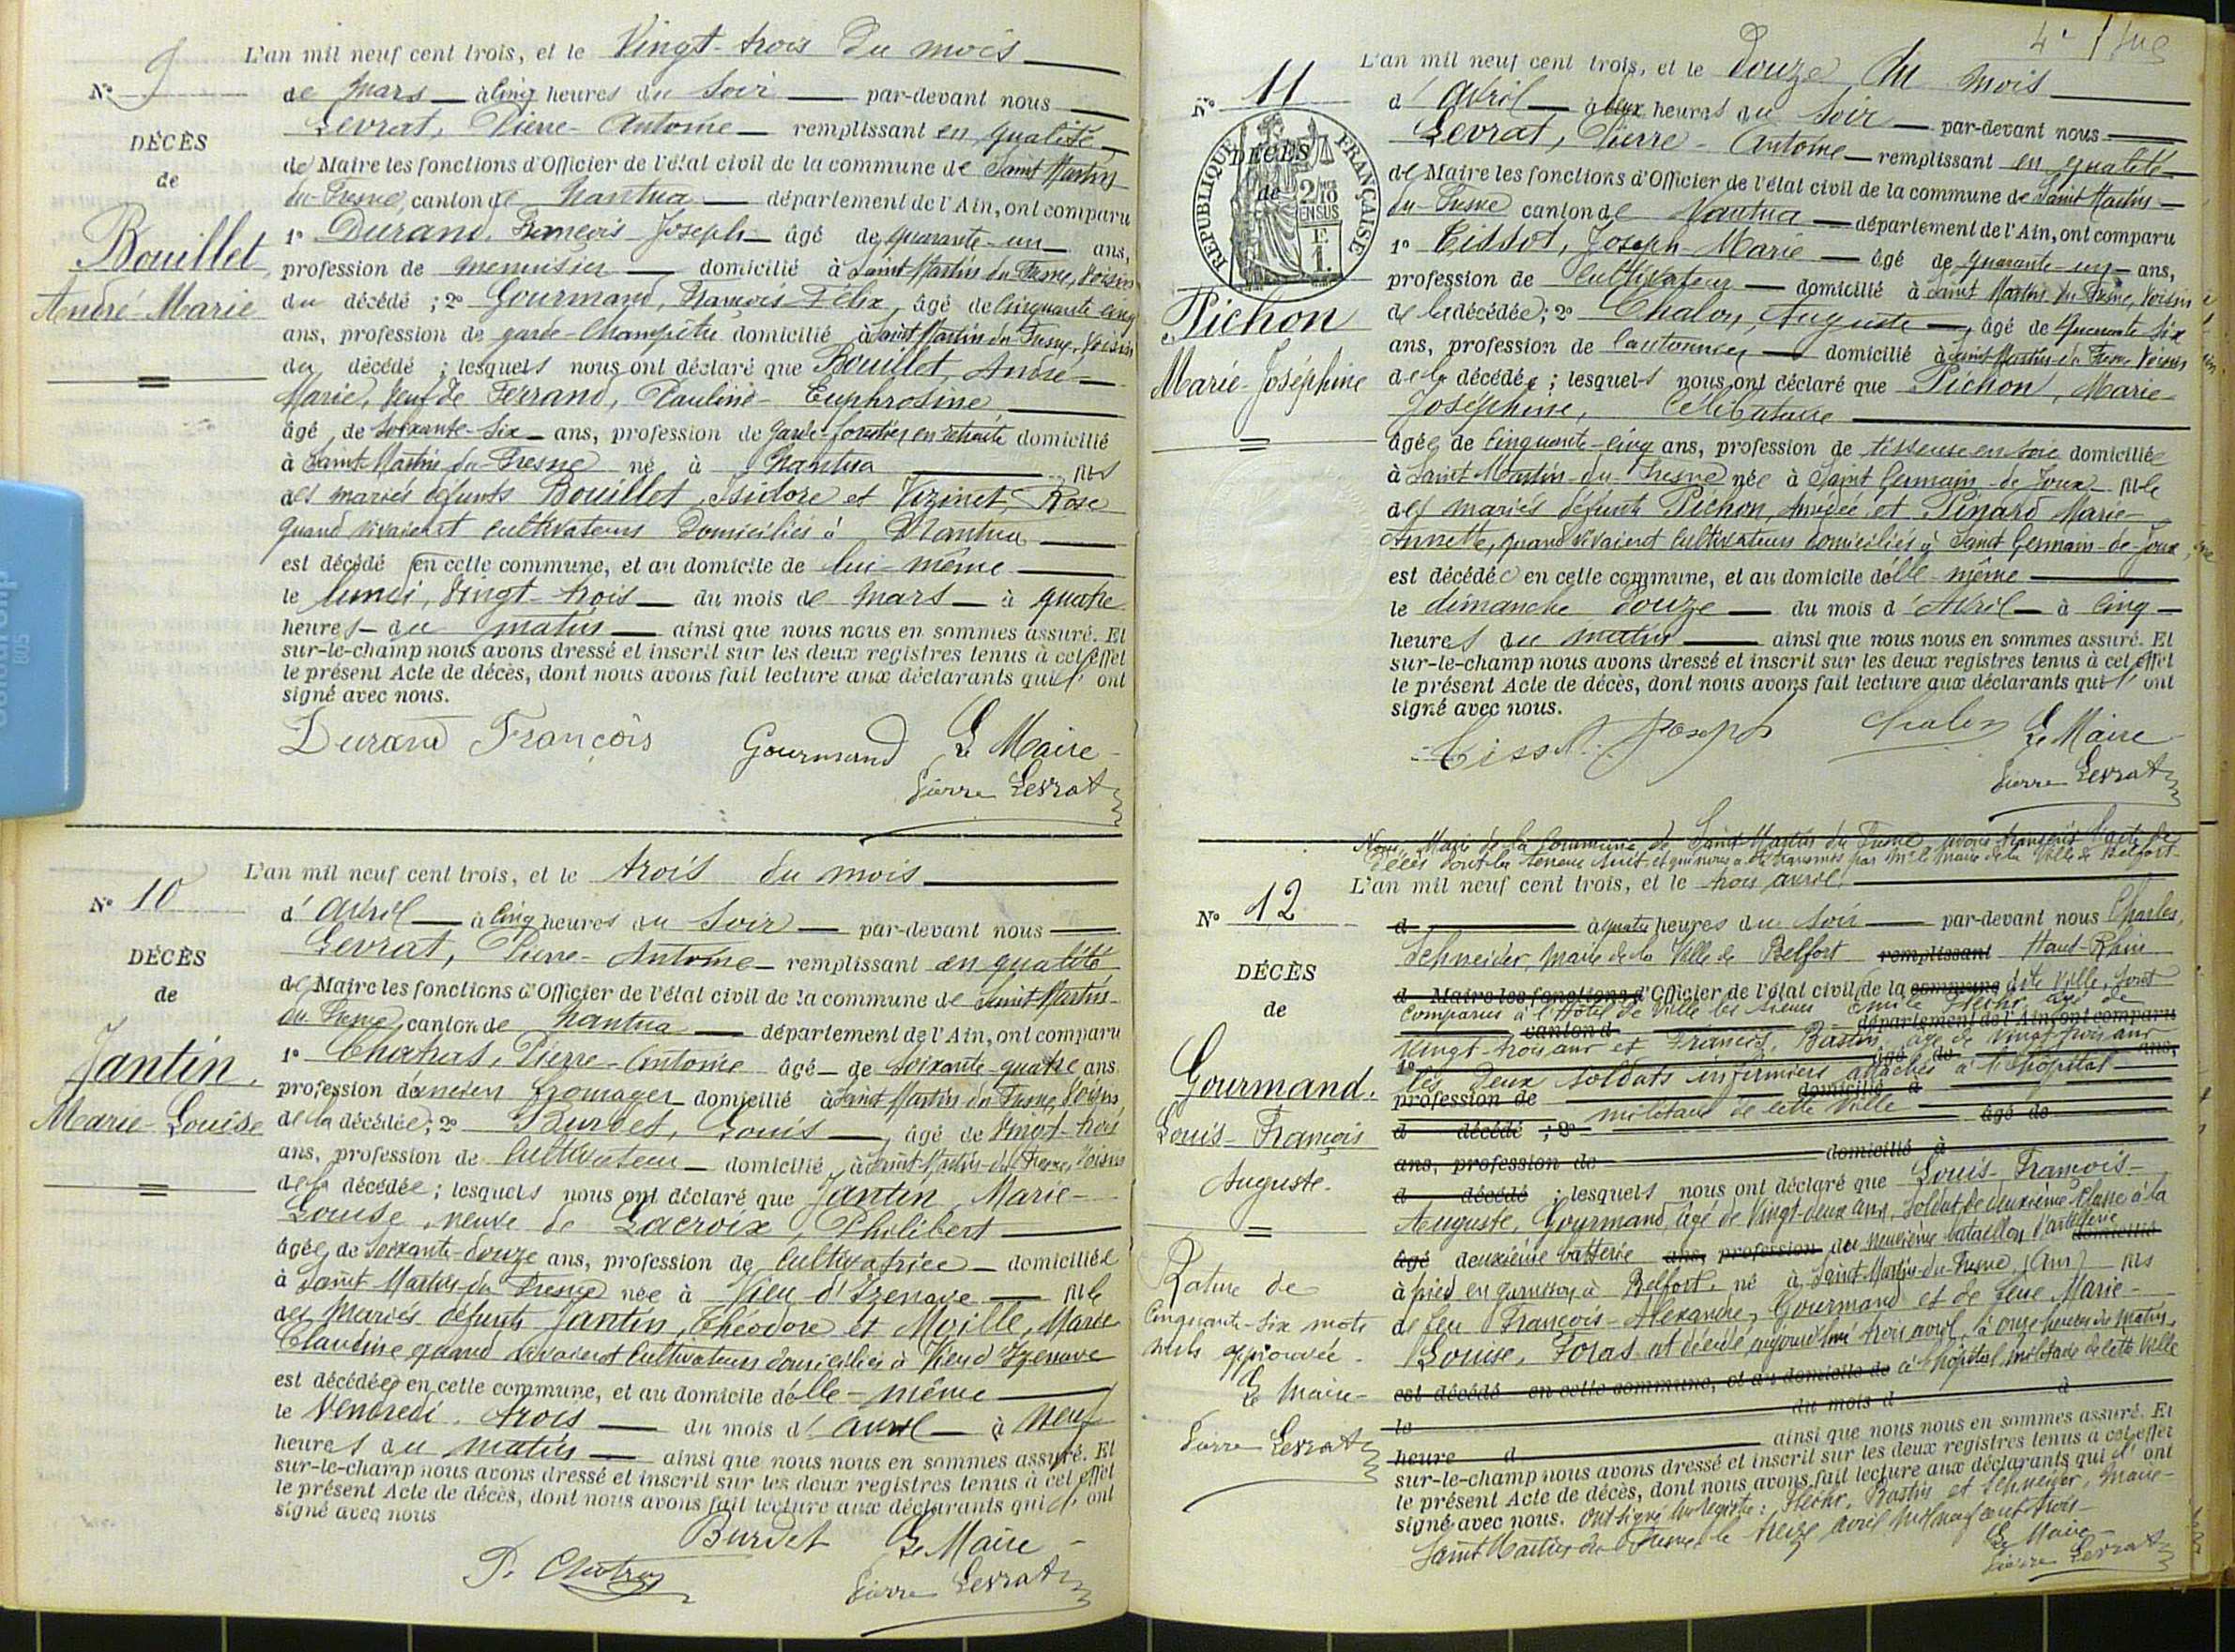 N° 9
DÉCÈS
de
Bouillet
André-Marie
L'an mil neuf cent trois, et le Vingt-trois du mois
de Mars à Cinq heures du Soir par-devant nous
Levrat, Pierre-Antoine remplissant en qualité
de Maire les fonctions d'Officier de l'état civil de la commune de Saint Martin
du-Fresne, canton de Nantua département de l'Ain, ont comparu
1° Durand, François Joseph âgé de quarante-un ans,
profession de menuisier domicilié à Saint-Martin du Fresne, Voisin
du décédé ; 2° Gourmand, François Félix, âgé de Cinquante cinq
ans, profession de garde-Champêtre domicilié à Saint Martin du Fresne, Voisin
du décédé ; lesquels nous ont déclaré que Bouillet, André-
Marie, Veuf de Ferrand, Pauline-Euphrosine
âgé de Soixante-Six ans, profession de garde-forestier en retraite domicilié
à Saint-Martin-du-Fresne né à Nantua fils
des mariés défunts Bouillet, Isidore et Vizinet, Rose
quand vivaient cultivateurs Domiciliés à Nantua
est décédé en cette commune, et au domicile de lui-même
le lundi, Vingt-trois du mois de Mars à quatre
heures du matin ainsi que nous nous en sommes assuré. Et
sur-le-champ nous avons dressé et inscrit sur les deux registres tenus à cet effet
le présent Acte de décès, dont nous avons fait lecture aux déclarants qui l' ont
signé avec nous.
Durand François Gourmand Le Maire
Pierre Levrat
N° 10
DÉCÈS
de
Jantin,
Marie-Louise
L'an mil neuf cent trois, et le trois du mois
d' Avril à Cinq heures du Soir par-devant nous
Levrat, Pierre-Antoine remplissant en qualité
de Maire les fonctions d'Officier de l'état civil de la commune de Saint-Martin-
du Fresne, canton de Nantua département de l'Ain, ont comparu
1° Pierre-Antoine âgé de Soixante-quatre ans
profession d'ancien fromager domicilié à Saint Martin du Fresne, Voisin
de la décédée ; 2° Burdet, Louis, âgé de Vingt-trois
ans, profession de Cultivateur domicilié à Saint-Martin-du Fresne, Voisin
de la décédée ; lesquels nous ont déclaré que Jantin, Marie-
Louise, veuve de Lacroix, Philibert
âgée de Soixante-douze ans, profession de Cultivatrice domiciliée
à Saint Martin-du Fresne née à Vieu d'Izenave fille
des Mariés défunts Jantin, Théodore et Moille, Marie
Claudine quand vivaient Cultivateurs domiciliés à Vieu d'Izenave
est décédée en cette commune, et au domicile d'elle-même
le Vendredi, trois du mois d' avril à Neuf
heures du matin ainsi que nous nous en sommes assuré. Et
sur-le-champ nous avons dressé et inscrit sur les deux registres tenus à cet effet
le présent Acte de décès, dont nous avons fait lecture aux déclarants qui l' ont
signé avec nous
Burdet Le Maire
Pierre Levrat
N° 11
RÉPUBLIQUE FRANÇAISE
DÉCÈS
de
2/10 EN SUS
Pichon
Marie-Joséphine
L'an mil neuf cent trois, et le Douze du mois
d' Avril à deux heures du Soir par-devant nous
Levrat, Pierre-Antoine remplissant en qualité
de Maire les fonctions d'Officier de l'état civil de la commune de Saint Martin
du-Fresne canton de Nantua département de l'Ain, ont comparu
1° Tissot, Joseph-Marie âgé de quarante-un ans,
profession de Cultivateur domicilié à Saint Martin du Fresne, Voisin
de la décédée ; 2° Chalon, Auguste, âgé de Quarante Six
ans, profession de Cantonnier domicilié à Saint-Martin-du Fresne Voisin
de la décédée ; lesquels nous ont déclaré que Pichon, Marie-
Joséphine, Célibataire
âgée de Cinquante-cinq ans, profession de tisseuse en soie domiciliée
à Saint-Martin-du-Fresne née à Saint Germain-de Joux fille
des mariés défunts Pichon, Amédée et Pinard Marie-
Annette, quand vivaient Cultivateurs domiciliés à Saint Germain-de-Joux
est décédée en cette commune, et au domicile d'elle-même
le dimanche Douze du mois d'Avril à Cinq
heures du matin ainsi que nous nous en sommes assuré. Et
sur-le-champ nous avons dressé et inscrit sur les deux registres tenus à cet effet
le présent Acte de décès, dont nous avons fait lecture aux déclarants qui l' ont
signé avec nous.
Tissot Joseph Chalon Le Maire
Pierre Levrat
N° 12
DÉCÈS
de
Gourmand.
Louis-François
Auguste.
Rature de
Cinquante-Six mots
nuls approuvée.
Le Maire
Pierre Levrat
Nous, Maire de la Commune de Saint-Martin du Fresne, avons transcrit l'acte de
Décès dont la teneur suit et qui nous a été transmis par Mr le Maire de la Ville de Belfort
L'an mil neuf cent trois, et le trois avril.
d à quatre heures du Soir par-devant nous Charles
Schneider, Maire de la Ville de Belfort remplissant Haut-Rhin
d Maire les fonctions d'Officier de l'état civil de la commune dite Ville, sont
comparus à l'Hôtel de Ville les sieurs Emile Flechr âgé de
canton d département de l'Ain, ont comparu
Vingt-trois ans et François, Bastin, âgé de Vingt trois ans
1° âgé de ans,
les deux soldats infirmiers attachés à l'hôpital
profession de domicilié à
militaire de cette Ville
d décédé ; 2° âgé de
ans, profession de domicilié à
d décédé ; lesquels nous ont déclaré que Louis-François-
Auguste, Gourmand, âgé de Vingt-deux ans, Soldat de deuxième Classe à la
âgé deuxième batterie ans, profession du neuvième bataillon d'artillerie domicilié
à pied en garnison à Belfort, né à Saint-Martin-du-Fresne (Ain) fils
de feu François-Alexandre, Gourmand et de feue Marie-
Louise, Foras est décédé aujourd'hui trois avril, à onze heures du matin,
est décédé en cette commune, et au domicile de à l'hôpital militaire de cette Ville
le du mois d à
heure d ainsi que nous nous en sommes assuré. Et
sur-le-champ nous avons dressé et inscrit sur les deux registres tenus à cet effet
le présent Acte de décès, dont nous avons fait lecture aux déclarants qui l' ont
signé avec nous. Ont signé au registre : Flechr, Bastin et Schneider, Maire-
Saint Martin du Fresne le treize avril mil neuf cent trois
Le Maire
Pierre Levrat